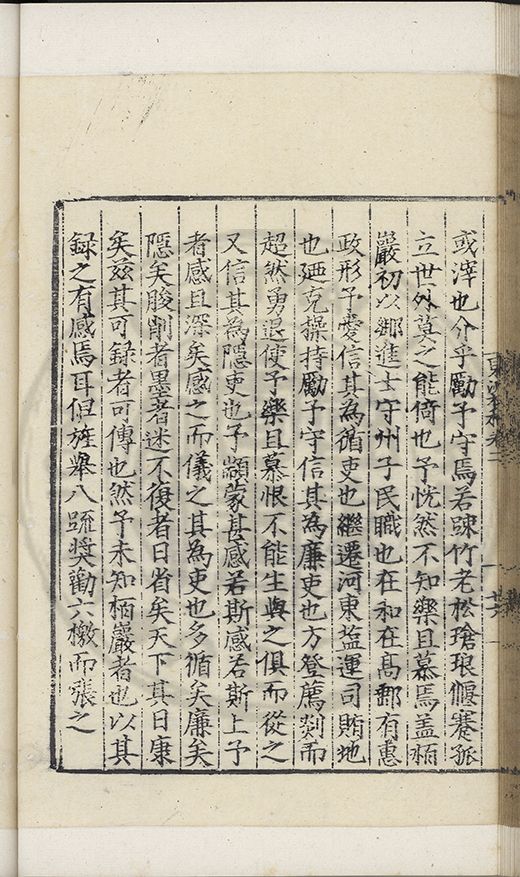 或滓也介乎勵予守焉若踈竹老松瑲琅偃蹇孤
立世外莫之能倚也予恍然不知樂且慕焉盖栢
巖初以鄉進士守州子民職也在和在髙郵有惠
政形予愛信其為循吏也繼遷河東塩運司賄地
也廼克操持勵予守信其為廉吏也方登薦剡而
超然勇退使予樂且慕恨不能生與之俱而從之
又信其為隠吏也予顓蒙甚感若斯感若斯上予
者感且深矣感之而儀之其為吏也多循矣廉矣
隠矣朘削者墨者迷不復者日省矣天下其日康
矣兹其可録者可傳也然予未知栢巖者也以其
録之有感焉耳但旌舉八䟽奬勸六檄而張之